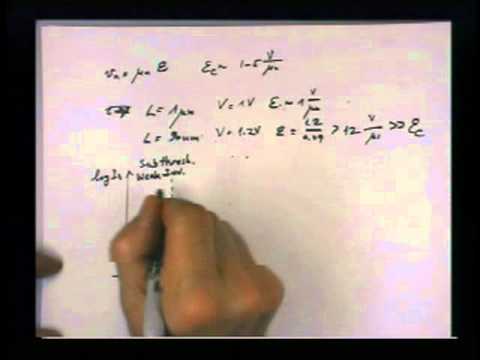 vₙ = μₙ ℰ ℰc ~ 1-5 V/μm
L = 1μm V = 1V ℰ ~ 1 V/μm
L = 90nm V = 1.2V ℰ = 1.2/0.09 > 12 V/μ >> ℰc
Subthresh.
log Is Weak Inv.